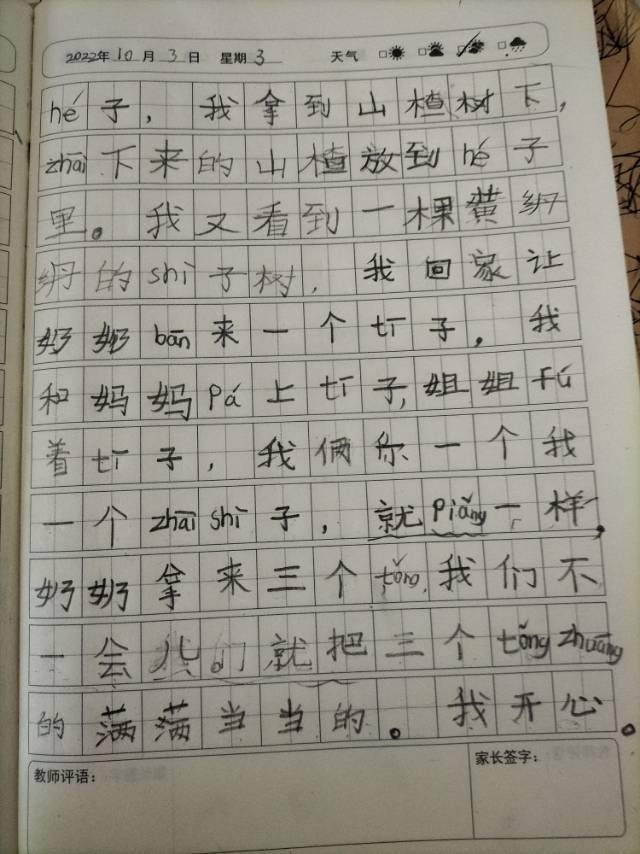 2022年10月3日 星期3 天气
hé子，我拿到山楂树下，
zhāi下来的山楂放到hé子
里。我又看到一棵黄
的shì子树，我回家让
奶奶bān来一个tī子，我
和妈妈pá上tī子，姐姐fú
着tī子，我俩你一个我
一个zhāi shì子，就piǎng一样，
奶奶拿来三个tǒng，我们不
一会儿们就把三个tǒng zhuāng
的满满当当的。我开心。
教师评语：
家长签字：